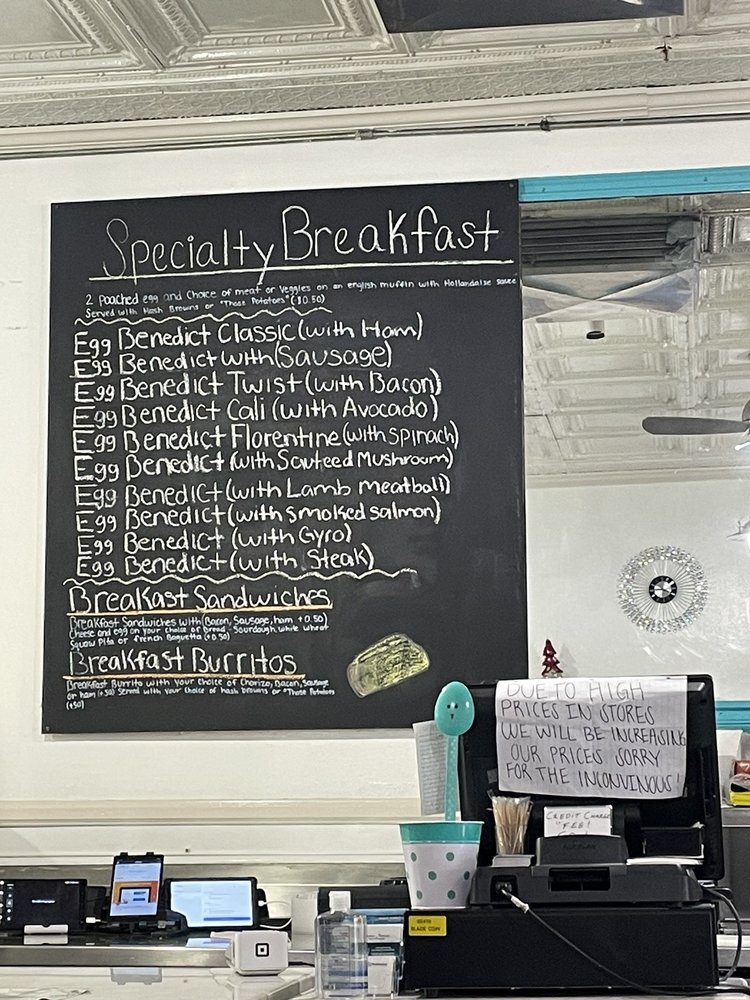 Specialty Breakfast
2 Poached egg and Choice of meat or Veggies on an english muffin with Hollandaise sauce
Served with Hash Browns or "Those Potatoes" (+$0.50)
Egg Benedict Classic (with Ham)
Egg Benedict with (Sausage)
Egg Benedict Twist (with Bacon)
Egg Benedict Cali (with Avocado)
Egg Benedict Florentine (with SPinach)
Egg Benedict (with Sauteed Mushroom)
Egg Benedict (with Lamb meatball)
Egg Benedict (with smoked salmon)
Egg Benedict (with Gyro)
Egg Benedict (with Steak)
Breakast Sandwiches
Breakfast Sandwiches with (Bacon, Sausage, ham +0.50)
Cheese and egg on your choice of Bread - Sourdough, white wheat
Squaw Pita or french Baguetta (+0.50)
Breakfast Burritos
Breakfast Burrito with your choice of Chorizo, Bacon, Sausage
or ham (+50) Served with your choice of hash browns or "Those Potatoes
(+50)
DUE TO HIGH
PRICES IN STORES
WE WILL BE INCREASING
OUR PRICES SORRY
FOR THE INCONVINOUS!
CREDIT CHARGE
"FEE!
BLADE COIN